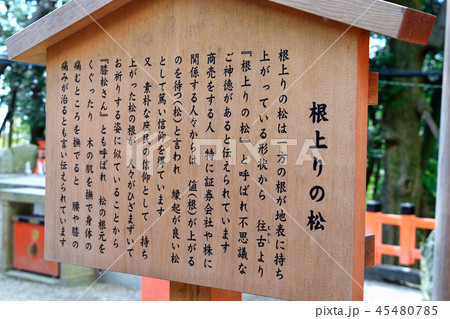 根上りの松
根上りの松は 二方の根が地表に持ち
上がっている形状から 往古より
『根上りの松』と呼ばれ不思議な
ご神徳があると伝えられています
商売をする人 特に証券会社や株に
関係する人々からは 値(根)が上がる
のを待つ(松)と言われ 縁起が良い松
として篤い信仰を得ています
又 素朴な庶民の信仰として 持ち
上がった松の根が 人々がひざまずいて
お祈りする姿に似ていることから
『膝松さん』とも呼ばれ 松の根元を
くぐったり 木の肌を撫で身体の
痛むところを撫でると 腰や膝の
痛みが治るとも言い伝えられています
pixta.jp - 45480785